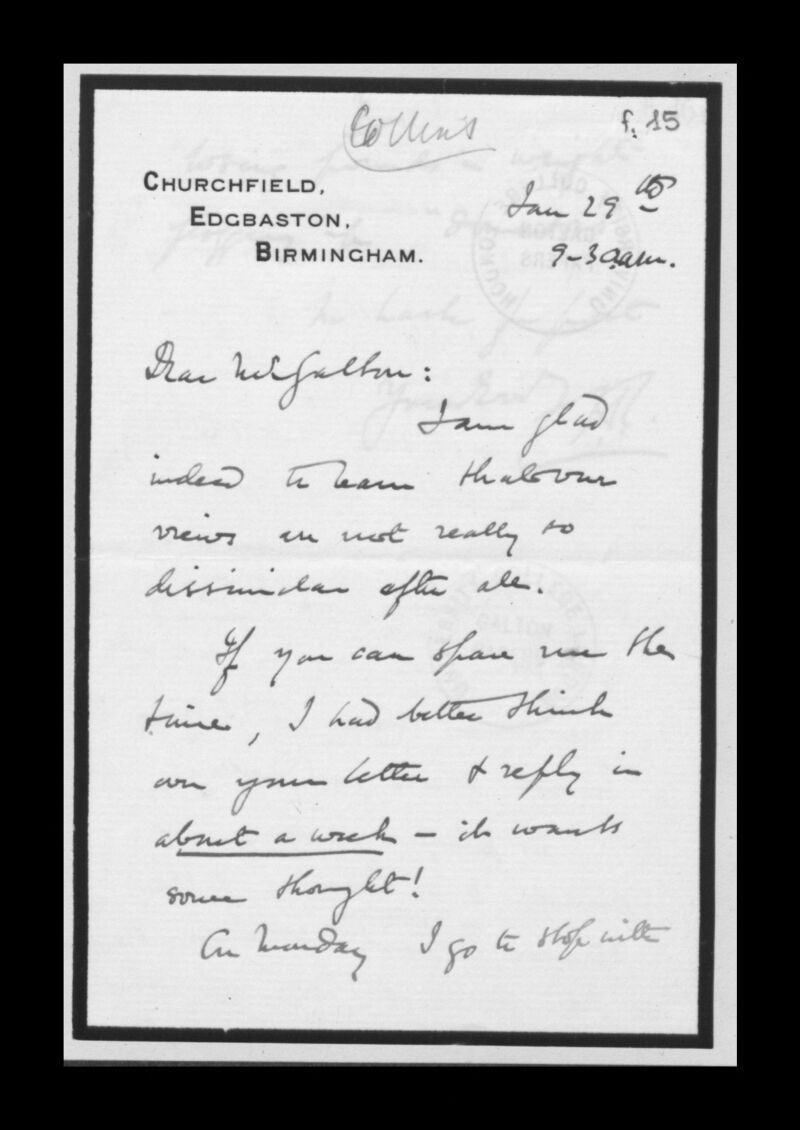 Collins
f. 15
CHURCHFIELD,
EDGBASTON,
BIRMINGHAM.
Jan 29th
9-30 am.
Dear Mr Galton:
I am glad
indeed to learn that our
views are not really so
dissimilar after all.
If you can spare me the
time, I had better think
over your letter & reply in
about a week - it wants
some thought!
On Monday I go to stop with